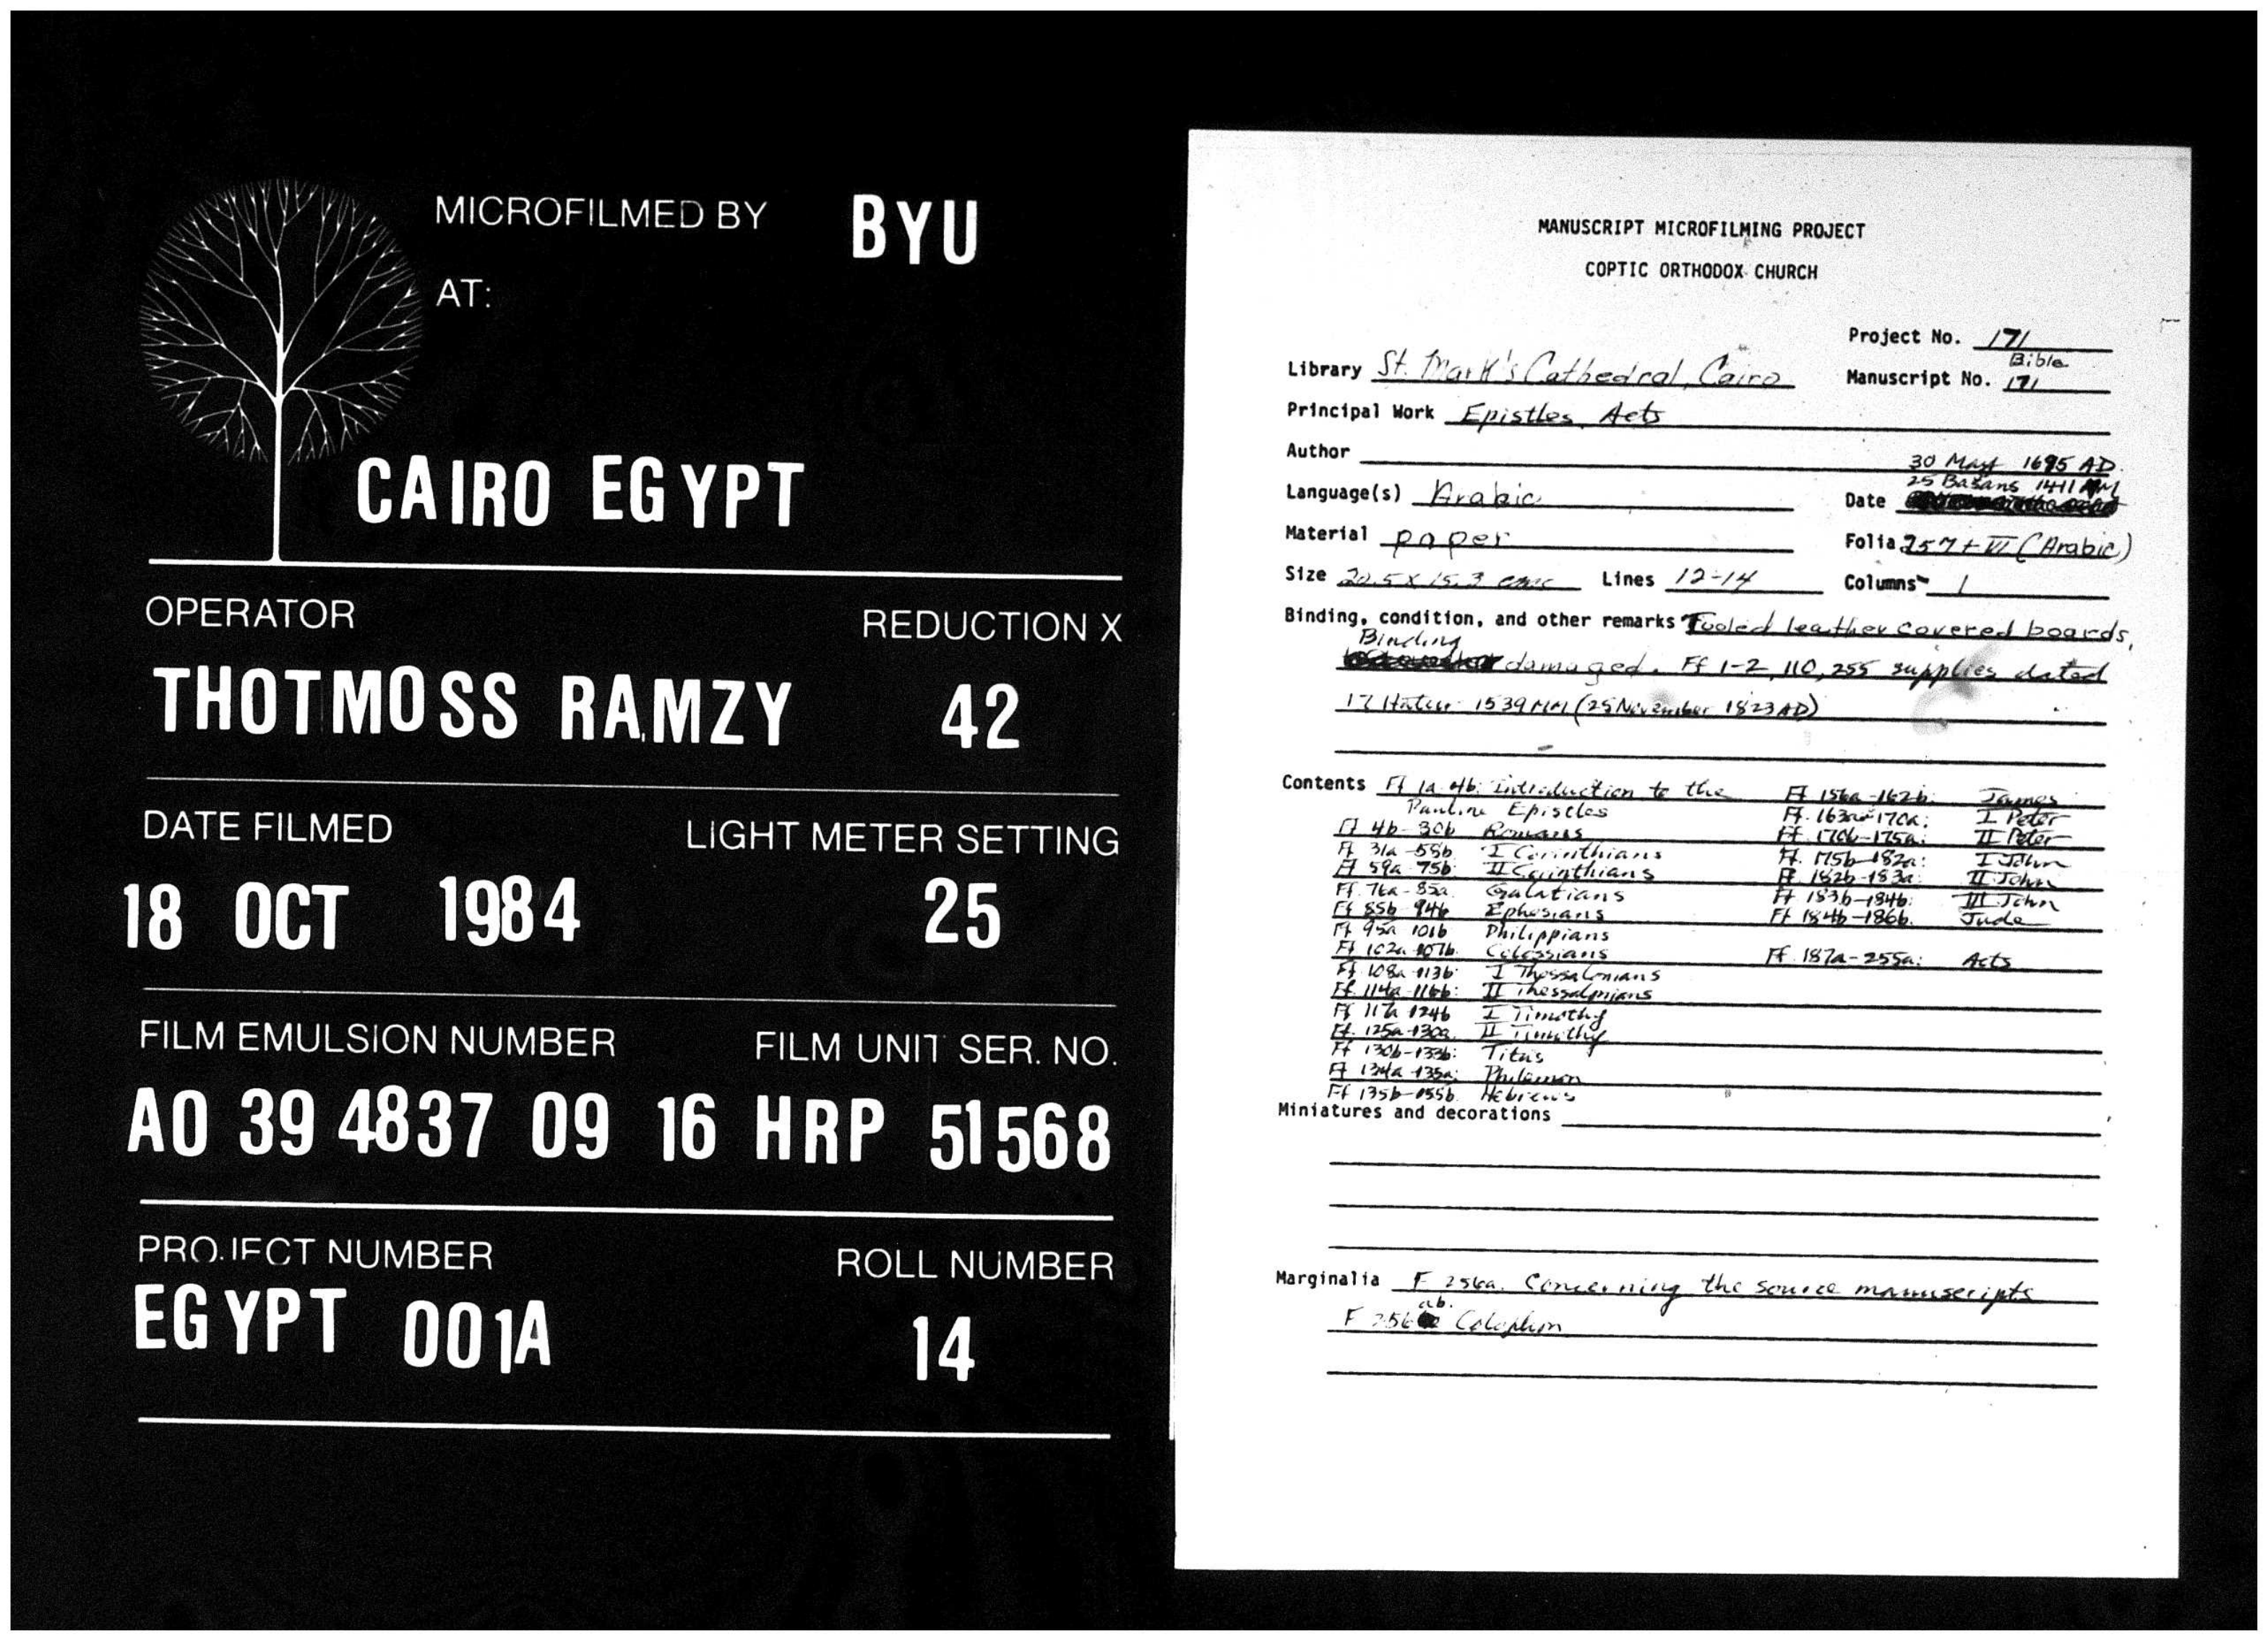 MICROFILMED BY BYU
AT:
CAIRO EGYPT
OPERATOR REDUCTION X
THOTMOSS RAMZY 42
DATE FILMED LIGHT METER SETTING
18 OCT 1984 25
FILM EMULSION NUMBER FILM UNIT SER. NO.
A0 39 4837 09 16 HRP 51568
PROJECT NUMBER ROLL NUMBER
EGYPT 001A 14
MANUSCRIPT MICROFILMING PROJECT
COPTIC ORTHODOX CHURCH
Project No. 171
Library St. Mark's Cathedral, Cairo
Bible
Manuscript No. 171
Principal Work Epistles, Acts
Author
30 May 1695 AD.
25 Basans 1411 AM
Language(s) Arabic Date
Material paper Folia 257 + VI (Arabic)
Size 20.5 x 15.3 Lines 12-14 Columns 1
Binding, condition, and other remarks Tooled leather covered boards,
Binding
damaged. Ff 1-2, 110, 255 supplies dated
17 Hatur 1539 MM (25 November 1823 AD)
Contents Ff 1a-4b: Introduction to the
Pauline Epistles
Ff 4b-30b Romans
Ff 31a-58b I Corinthians
Ff 59a-75b II Corinthians
Ff. 76a-85a Galatians
Ff 85b-94b Ephesians
Ff 95a-101b Philippians
Ff 102a-107b. Colossians
Ff. 108a-113b: I Thessalonians
Ff. 114a-116b: II Thessalonians
Ff 117a-124b I Timothy
Ff. 125a-130a II Timothy
Ff 130b-133b: Titus
Ff 134a-135a: Philemon
Ff 135b-155b. Hebrews
Ff 156a-162b: James
Ff. 163a-170a: I Peter
Ff. 170b-175a: II Peter
Ff. 175b-182a: I John
Ff 182b-183a: II John
Ff 183b-184b: III John
Ff 184b-186b. Jude
Ff. 187a-255a: Acts
Miniatures and decorations
Marginalia F 256a. Concerning the source manuscripts
ab.
F 256 Colophon